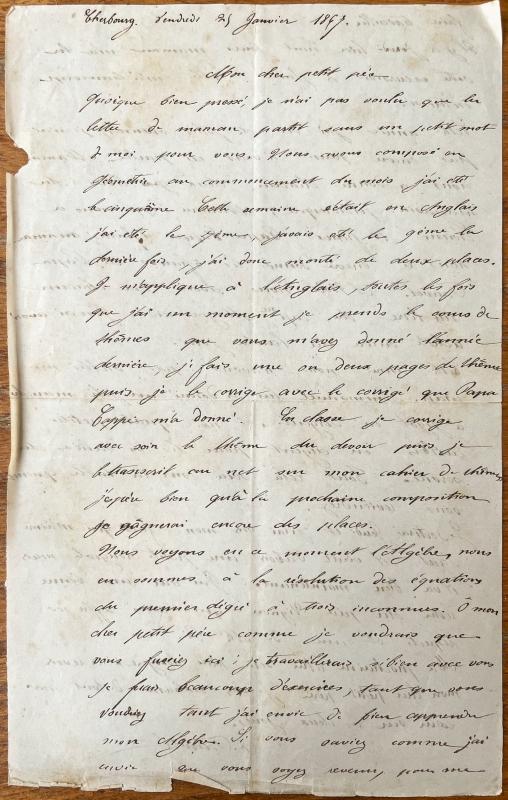 Cherbourg. Vendredi 25 Janvier 1867.
Mon cher petit père
Quoique bien pressé, je n'ai pas voulu que la
lettre de maman partit sans un petit mot
de moi pour vous. Nous avons composé en
Géométrie au commencement du mois, j'ai été
le cinquième Cette semaine c'était en Anglais
j'ai été le 7ème, j'avais été le 9ème la
dernière fois, j'ai donc monté de deux places.
Je m'applique à l'Anglais, toutes les fois
que j'ai un moment je prends le cours de
thêmes que vous m'avez donné l'année
dernière je fais une ou deux pages de thême
puis je le corrige avec le corrigé que Papa
m'a donné. En classe je corrige
avec soin le thême du devoir puis je
le transcrit au net sur mon cahier de thêmes
j'espère bien qu'à la prochaine composition
je gâgnerai encore des places.
Nous voyons en ce moment l'Algèbre, nous
en sommes à la résolution des équations
du premier dégré à trois inconnues. Ô mon
cher petit père comme je voudrais que
vous fussiez ici; je travaillerais si bien avec vous
je ferais beaucoup d'exercices, tant que vous
voudriez tant j'ai envie de bien apprendre
mon Algèbre. Si vous saviez comme j'ai
envie que vous soyez revenu, pour me